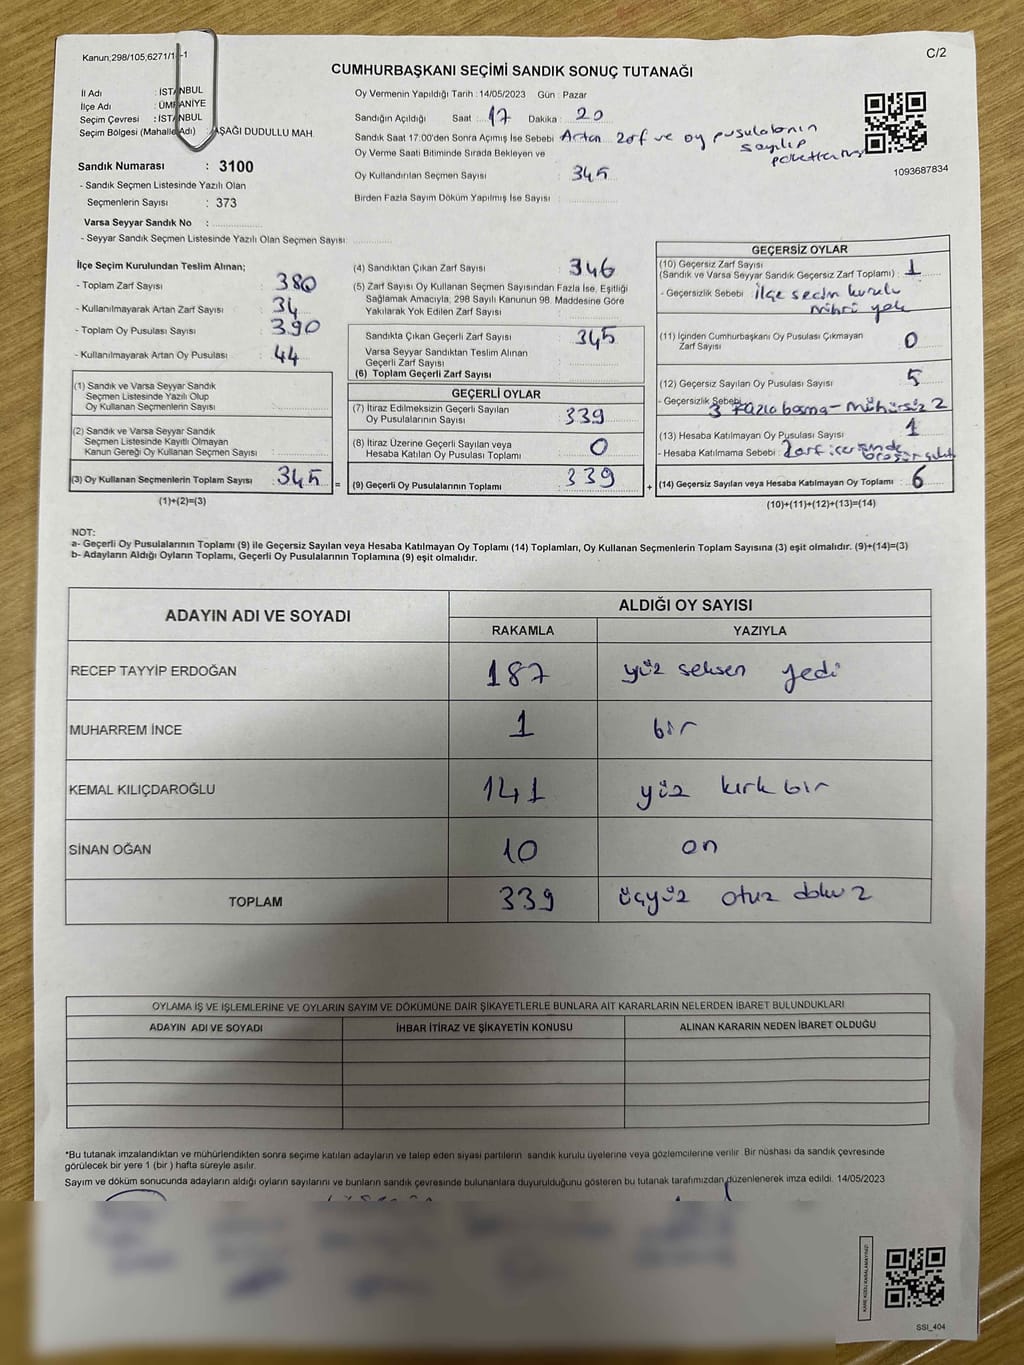 Kanun;298/105;6271/1 -1
C/2
CUMHURBAŞKANI SEÇİMİ SANDIK SONUÇ TUTANAĞI
İl Adı : İSTANBUL
İlçe Adı : ÜMRANİYE
Seçim Çevresi : İSTANBUL
Seçim Bölgesi (Mahalle Adı) : AŞAĞI DUDULLU MAH.
Sandık Numarası : 3100
- Sandık Seçmen Listesinde Yazılı Olan
Seçmenlerin Sayısı : 373
Varsa Seyyar Sandık No :
- Seyyar Sandık Seçmen Listesinde Yazılı Olan Seçmen Sayısı:
Oy Vermenin Yapıldığı Tarih : 14/05/2023 Gün : Pazar
Sandığın Açıldığı Saat : 17 Dakika : 20
Sandık Saat 17:00'den Sonra Açımış İse Sebebi Artan zarf ve oy pusulalarının
sayılıp
Oy Verme Saati Bitiminde Sırada Bekleyen ve
Oy Kullandırılan Seçmen Sayısı : 345
Birden Fazla Sayım Döküm Yapılmış İse Sayısı :
1093687834
İlçe Seçim Kurulundan Teslim Alınan;
- Toplam Zarf Sayısı : 380
- Kullanılmayarak Artan Zarf Sayısı : 34
- Toplam Oy Pusulası Sayısı : 390
- Kullanılmayarak Artan Oy Pusulası : 44
(1) Sandık ve Varsa Seyyar Sandık
Seçmen Listesinde Yazılı Olup
Oy Kullanan Seçmenlerin Sayısı :
(2) Sandık ve Varsa Seyyar Sandık
Seçmen Listesinde Kayıtlı Olmayan
Kanun Gereği Oy Kullanan Seçmen Sayısı :
(3) Oy Kullanan Seçmenlerin Toplam Sayısı : 345 =
(1)+(2)=(3)
(4) Sandıktan Çıkan Zarf Sayısı : 346
(5) Zarf Sayısı Oy Kullanan Seçmen Sayısından Fazla İse, Eşitliği
Sağlamak Amacıyla, 298 Sayılı Kanunun 98. Maddesine Göre
Yakılarak Yok Edilen Zarf Sayısı :
Sandıkta Çıkan Geçerli Zarf Sayısı : 345
Varsa Seyyar Sandıktan Teslim Alınan
Geçerli Zarf Sayısı :
(6) Toplam Geçerli Zarf Sayısı :
GEÇERLİ OYLAR
(7) İtiraz Edilmeksizin Geçerli Sayılan
Oy Pusulalarının Sayısı : 339
(8) İtiraz Üzerine Geçerli Sayılan veya
Hesaba Katılan Oy Pusulası Toplamı : 0
(9) Geçerli Oy Pusulalarının Toplamı : 339 +
GEÇERSİZ OYLAR
(10) Geçersiz Zarf Sayısı
(Sandık ve Varsa Seyyar Sandık Geçersiz Zarf Toplamı) : 1
- Geçersizlik Sebebi : İlçe seçim kurulu
mührü yok
(11) İçinden Cumhurbaşkanı Oy Pusulası Çıkmayan
Zarf Sayısı : 0
(12) Geçersiz Sayılan Oy Pusulası Sayısı : 5
- Geçersizlik Sebebi : 3 Fazla basma - Mühürsüz 2
(13) Hesaba Katılmayan Oy Pusulası Sayısı : 1
- Hesaba Katılmama Sebebi : Zarf içerisinde
(14) Geçersiz Sayılan veya Hesaba Katılmayan Oy Toplamı : 6
(10)+(11)+(12)+(13)=(14)
NOT:
a- Geçerli Oy Pusulalarının Toplamı (9) ile Geçersiz Sayılan veya Hesaba Katılmayan Oy Toplamı (14) Toplamları, Oy Kullanan Seçmenlerin Toplam Sayısına (3) eşit olmalıdır. (9)+(14)=(3)
b- Adayların Aldığı Oyların Toplamı, Geçerli Oy Pusulalarının Toplamına (9) eşit olmalıdır.
ADAYIN ADI VE SOYADI ALDIĞI OY SAYISI
RAKAMLA YAZIYLA
RECEP TAYYİP ERDOĞAN 187 yüz seksen yedi
MUHARREM İNCE 1 bir
KEMAL KILIÇDAROĞLU 141 yüz kırk bir
SİNAN OĞAN 10 on
TOPLAM 339 üçyüz otuz dokuz
OYLAMA İŞ VE İŞLEMLERİNE VE OYLARIN SAYIM VE DÖKÜMÜNE DAİR ŞİKAYETLERLE BUNLARA AİT KARARLARIN NELERDEN İBARET BULUNDUKLARI
ADAYIN ADI VE SOYADI İHBAR İTİRAZ VE ŞİKAYETİN KONUSU ALINAN KARARIN NEDEN İBARET OLDUĞU
*Bu tutanak imzalandıktan ve mühürlendikten sonra seçime katılan adayların ve talep eden siyasi partilerin sandık kurulu üyelerine veya gözlemcilerine verilir. Bir nüshası da sandık çevresinde
görülecek bir yere 1 (bir ) hafta süreyle asılır.
Sayım ve döküm sonucunda adayların aldığı oyların sayılarını ve bunların sandık çevresinde bulunanlara duyurulduğunu gösteren bu tutanak tarafımızdan düzenlenerek imza edildi. 14/05/2023
KARE KODU KARALAMAYINIZ!
SSI_404